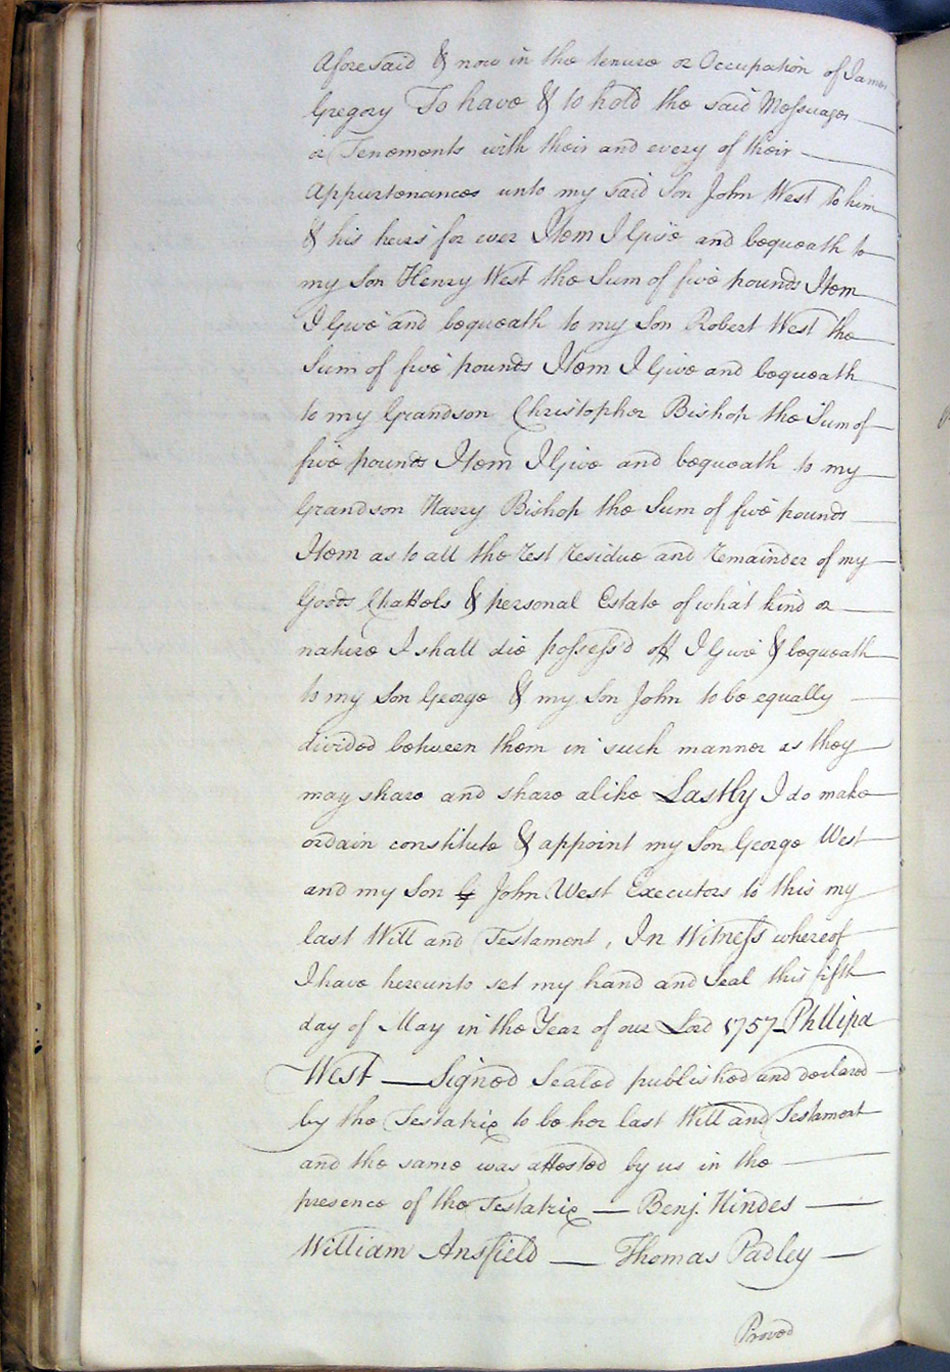 Aforesaid & now in the tenure or Occupation of James
Gregory To have & to hold the said Messuages
or Tenements with their and every of their
Appurtenances unto my said Son John West to him
& his heirs for ever Item I Give and bequeath to
my Son Henry West the Sum of five pounds Item
I Give and bequeath to my Son Robert West the
Sum of five pounds Item I Give and bequeath
to my Grandson Christopher Bishop the Sum of
five pounds Item I Give and bequeath to my
Grandson Harry Bishop the Sum of five pounds
Item as to all the rest residue and remainder of my
Goods Chattels & personal Estate of what kind or
nature I shall die possess'd off I Give & bequeath
to my Son George & my Son John to be equally
divided between them in such manner as they
may share and share alike Lastly I do make
ordain constitute & appoint my Son George West
and my Son John West Executors to this my
last Will and Testament, In Witness whereof
I have hereunto set my hand and Seal this fifth
day of May in the Year of our Lord 1757 Phllipa
West — Signed Sealed published and declared
by the Testatrix to be her last Will and Testament
and the same was attested by us in the
presence of the Testatrix — Benj. Hindes —
William Ansfield — Thomas Padley —
Proved